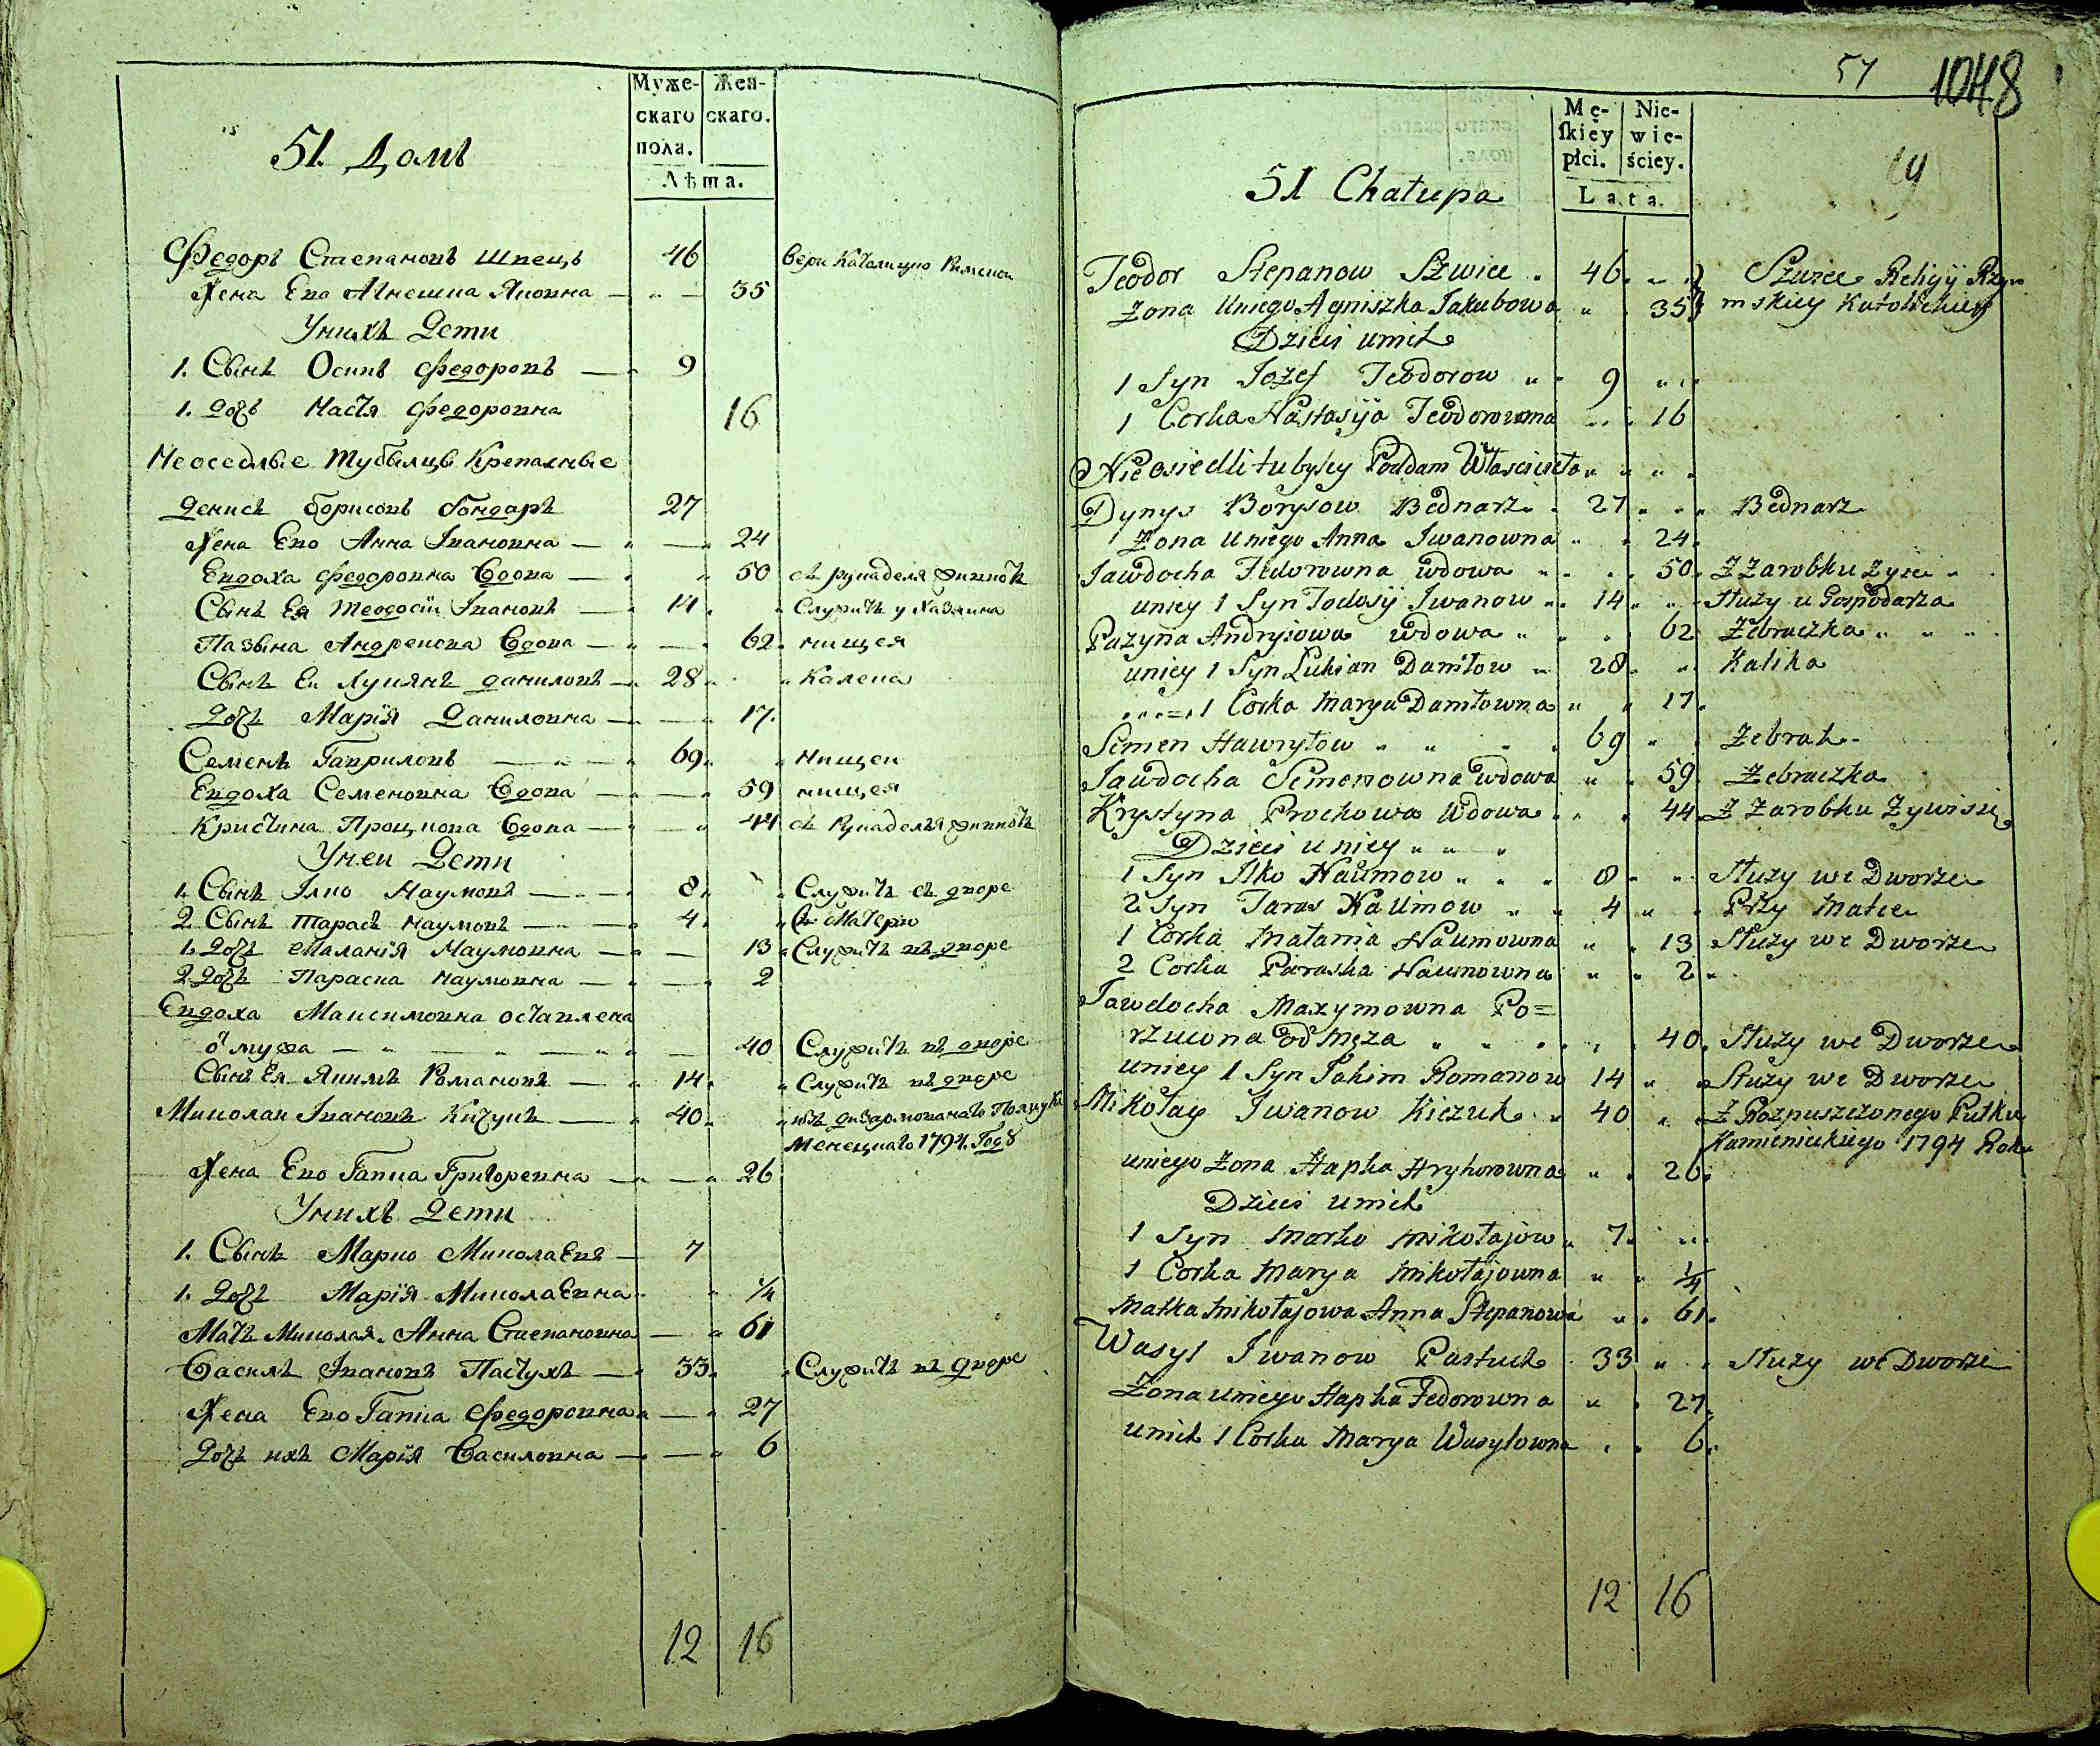 Муже-
скаго
пола.
Жен-
скаго.
Лѣта.
51. Домъ
Федоръ Степановъ Швецъ — 46 вери Католицко Римской
Жена Его Агнешка Яковна — 35
У нихъ Дети
1. Сынъ Осипъ Федоровъ — 9
1. Дочь Настя Федоровна 16
Неоседлые тубылцы Крепасные
Денисъ Борисовъ Бондаръ 27
Жена Его Анна Івановна — 24
Евдоха Федоровна Вдова — 50 съ рукаделя живиотъ
Сынъ Ея Теодосій Івановъ — 14 Служитъ у Хазяина
Пазына Андреиова Вдова — 62 нищея
Сынъ Еи Лукянъ Даниловъ — 28 Калека
Дочь Марія Даниловна — 17
Семенъ Гавриловъ — 69 нищеи
Евдоха Семеновна Вдова — 59 нищея
Кристина Процкова Вдова — 44 съ Рукаделья живиотъ
У неи Дети
1. Сынъ Ілко Наумовъ — 8 Служитъ въ дворе
2 Сынъ Тарасъ Наумовъ — 4 Съ Матерю
1. Дочь Маланія Наумовна — 13 Служитъ въ дворе
2 Дочь Параска Наумовна — 2
Евдоха Максимовна оставлена
от мужа — 40 Служитъ въ дворе
Сынъ Ея Якимъ Романовъ — 14 Служитъ въ дворе
Миколаи Івановъ Кичукъ — 40 изъ дизармованаго Полку Ка
менецкаго 1794. Году
Жена Его Гапка Григоревна — 26
У нихъ Дети
1. Сынъ Марко Миколаевъ — 7
1. Дочь Марія Миколаевна 1/4
Мать Миколая Анна Степановна — 61
Василъ Івановъ Пастухъ — 33 Служитъ въ дворе
Жена Его Гапка Федоровна — 27
Дочь ихъ Марія Василовна — 6
12 16
57 1048
Mę-
skiey
płci.
Nie-
wie-
ściey.
Lata.
51 Chałupa
Teodor Stepanow Szwiec 46 Szwiec Religij Rzy
Żona Uniego Agniszka Jakubowa 35 mskiey Katolickiey
Dzieci unich
1 Syn Jozef Teodorow 9
1 Corka Nastasija Teodorowna 16
Nieosiedli tubylcy Poddam Własciciela
Dynys Borysow Bednarz 27 Bednarz
Żona Uniego Anna Iwanowna 24
Jawdocha Fedorowna wdowa 50 Z Zarobku żyie
uniey 1 Syn Todosij Iwanow 14 Służy u Gospodarza
Pazyna Andryiowa wdowa 62 Żebraczka
uniey 1 Syn Lukian Daniłow 28 Kalika
1 Corka Marya Daniłowna 17
Semen Hawryłow 69 Żebrak
Jawdocha Semenowna wdowa 59 Żebraczka
Krystyna Prockowa Wdowa 44 Z Zarobku Żywi się
Dzieci uniey
1 Syn Ilko Naumow 8 Służy we Dworze
2 Syn Taras Naumow 4 Przy Matce
1 Corka Małania Naumowna 13 Służy we Dworze
2 Corka Paraska Naumowna 2
Jawdocha Maxymowna Po=
rzucona od Męza 40 Służy we Dworze
uniey 1 Syn Jakim Romanow 14 Służy we Dworze
Mikołay Iwanow Kiczuk 40 Z Rozpuszczonego Pułku
Kamienieckiego 1794 Roku
uniego Żona Hapka Hryhorowna 26
Dzieci unich
1 Syn Marko Mikołajow 7
1 Corka Marya Mikołajowna 1/4
Matka Mikołajowa Anna Stepanowa 61
Wasyl Iwanow Pastuch 33 Służy we Dworze
Żona uniego Hapka Fedorowna 27
unich 1 Corka Marya Wasylowna 6
12 16